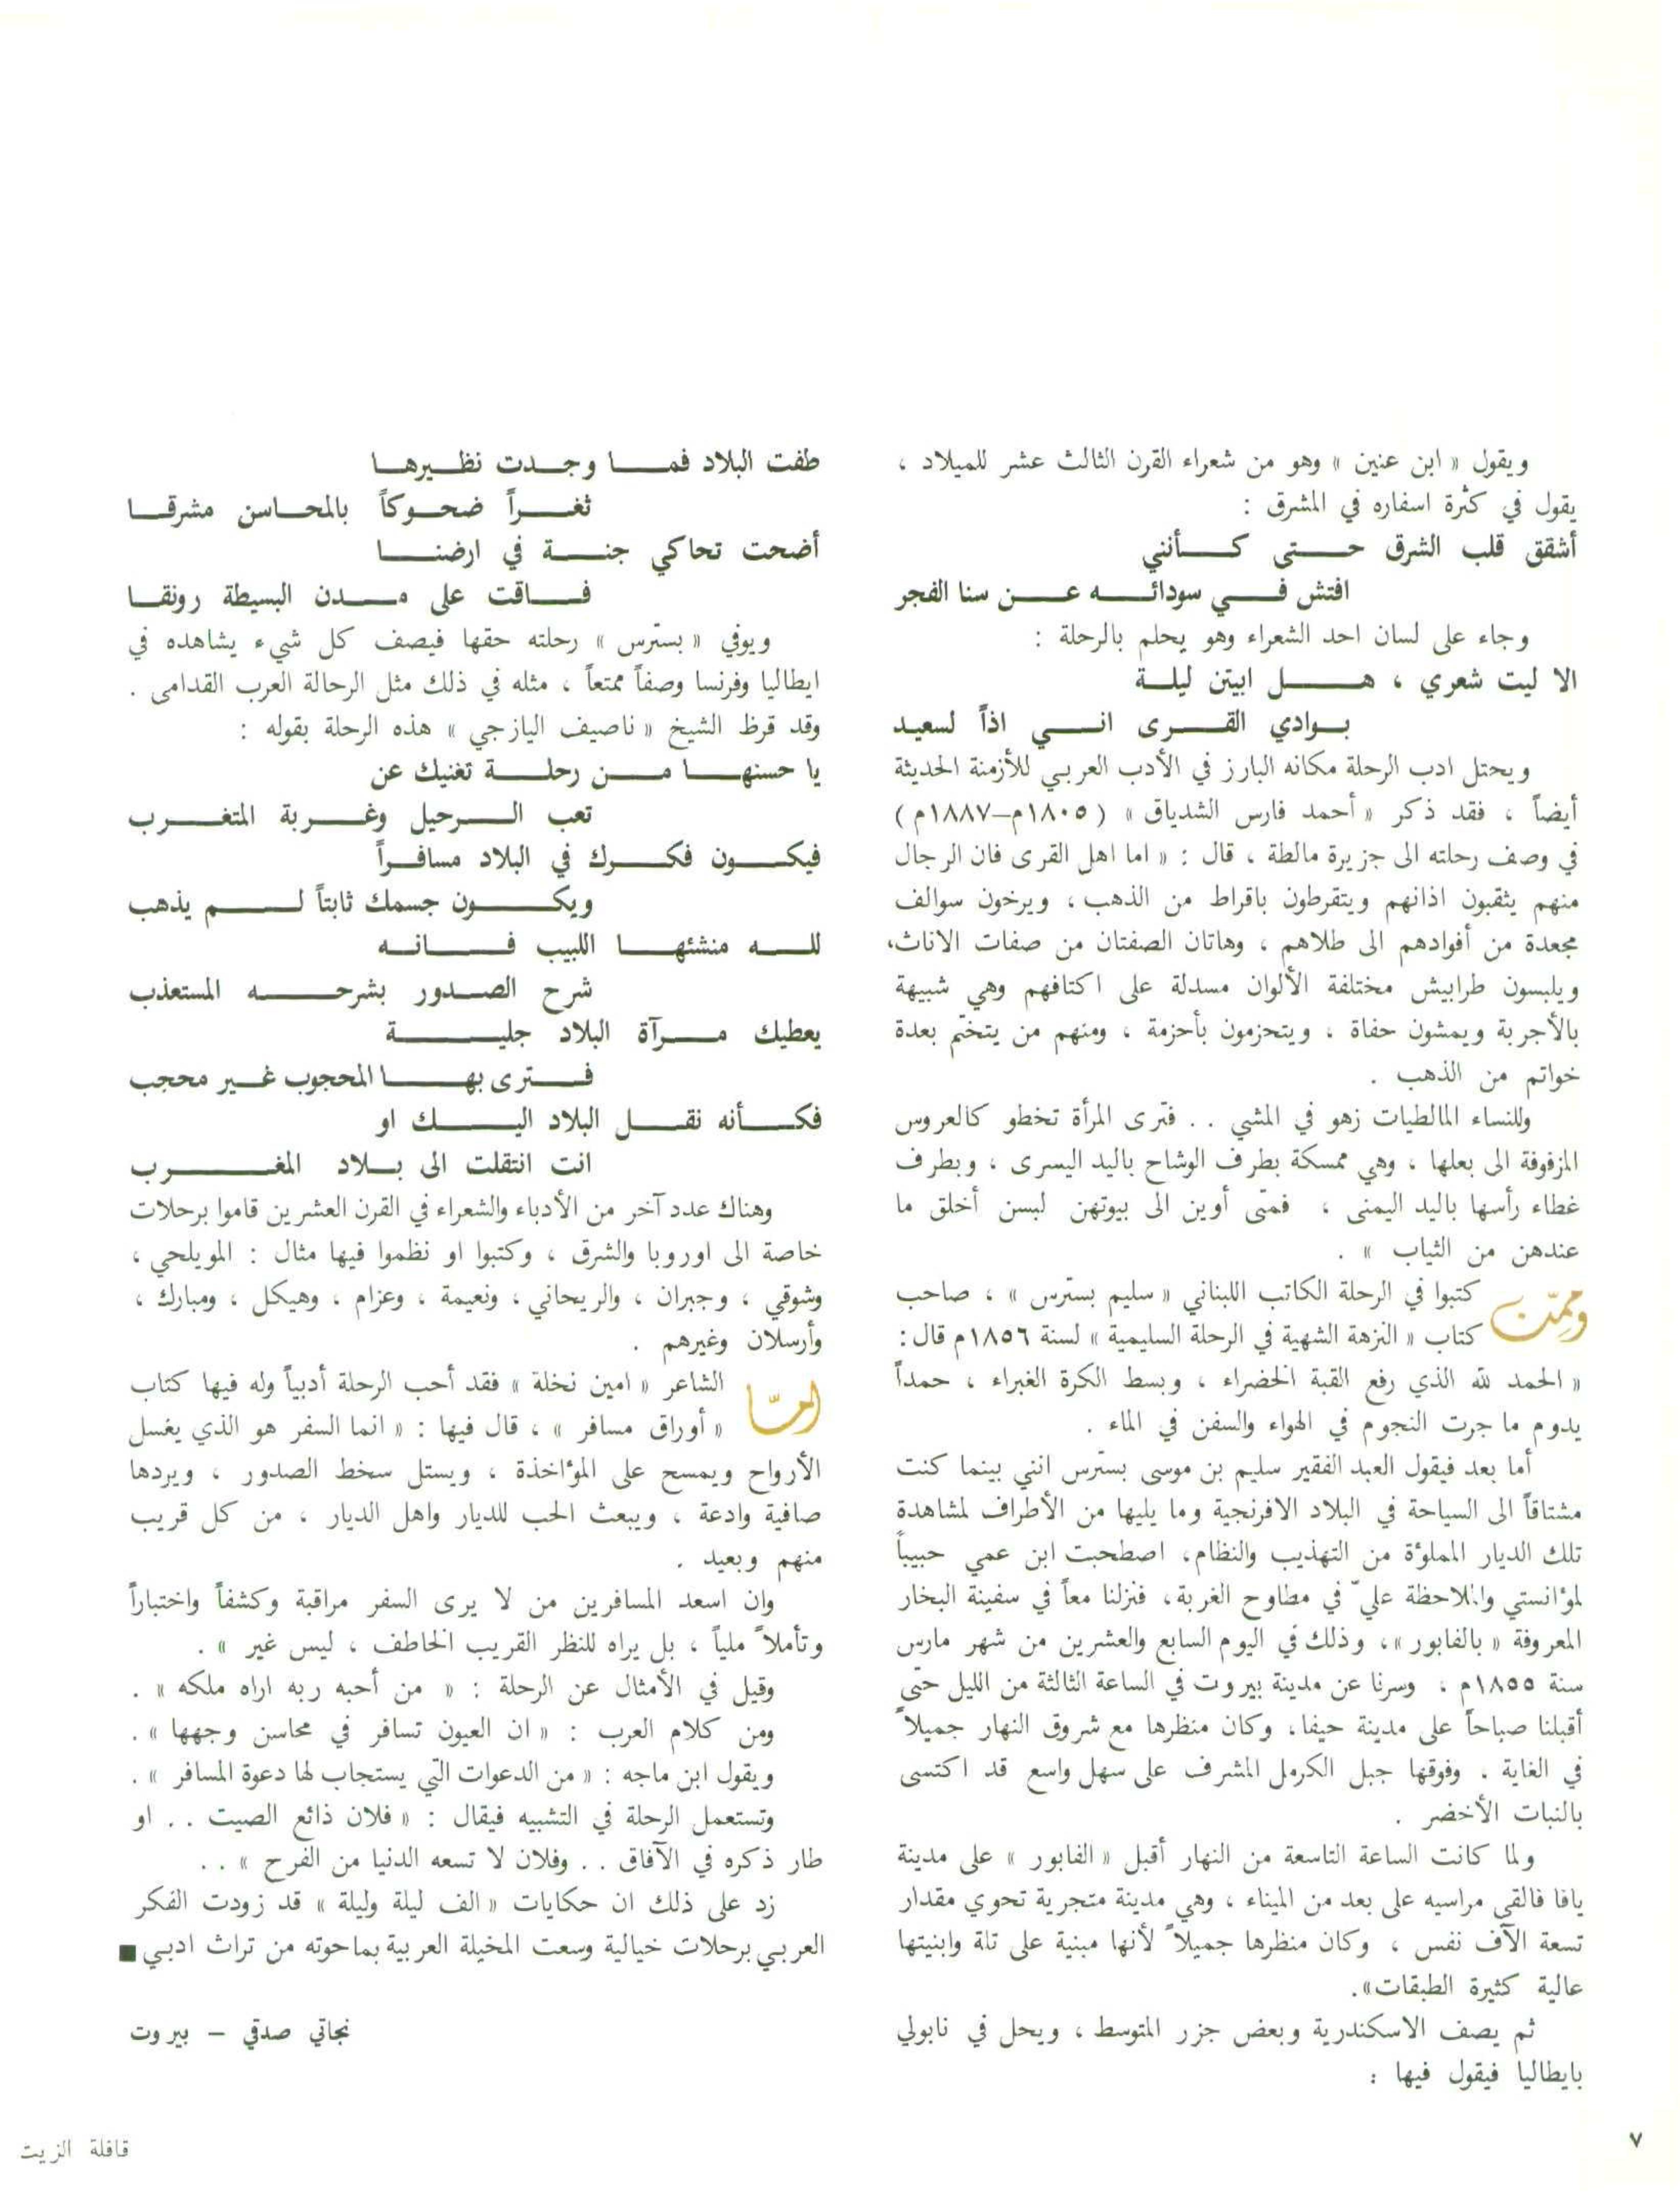 ويقول « ابن عنين » وهو من شعراء القرن الثالث عشر للميلاد ،
يقول في كثرة اسفاره في المشرق :
أشقق قلب الشرق حتى كأنني
افتش في سودائه عن سنا الفجر
وجاء على لسان احد الشعراء وهو يحلم بالرحلة :
الا ليت شعري ، هل ابيتن ليلة
بوادي القرى اني اذاً لسعيد
ويحتل ادب الرحلة مكانه البارز في الأدب العربي للأزمنة الحديثة
أيضاً ، فقد ذكر « أحمد فارس الشدياق » ( ١٨٠٥م–١٨٨٧م )
في وصف رحلته الى جزيرة مالطة ، قال : « اما اهل القرى فان الرجال
منهم يثقبون اذانهم ويتقرطون باقراط من الذهب ، ويرخون سوالف
مجعدة من أفوادهم الى طلاهم ، وهاتان الصفتان من صفات الاناث،
ويلبسون طرابيش مختلفة الألوان مسدلة على اكتافهم وهي شبيهة
بالأجربة ويمشون حفاة ، ويتحزمون بأحزمة ، ومنهم من يتختّم بعدة
خواتم من الذهب .
وللنساء المالطيات زهو في المشي . . فترى المرأة تخطو كالعروس
المزفوفة الى بعلها ، وهي ممسكة بطرف الوشاح باليد اليسرى ، وبطرف
غطاء رأسها باليد اليمنى ، فمتى أوين الى بيوتهن لبسن أخلق ما
عندهن من الثياب » .
وممّن كتبوا في الرحلة الكاتب اللبناني « سليم بسترس » ، صاحب
كتاب « النزهة الشهية في الرحلة السليمية » لسنة ١٨٥٦م قال :
« الحمد لله الذي رفع القبة الخضراء ، وبسط الكرة الغبراء ، حمداً
يدوم ما جرت النجوم في الهواء والسفن في الماء .
أما بعد فيقول العبد الفقير سليم بن موسى بسترس انني بينما كنت
مشتاقاً الى السياحة في البلاد الافرنجية وما يليها من الأطراف لمشاهدة
تلك الديار المملوٴة من التهذيب والنظام، اصطحبت ابن عمي حبيباً
لموٴانستي والملاحظة عليّ في مطاوح الغربة، فنزلنا معاً في سفينة البخار
المعروفة « بالفابور »، وذلك في اليوم السابع والعشرين من شهر مارس
سنة ١٨٥٥م ، وسرنا عن مدينة بيروت في الساعة الثالثة من الليل حتى
أقبلنا صباحاً على مدينة حيفا، وكان منظرها مع شروق النهار جميلاً
في الغاية ، وفوقها جبل الكرمل المشرف على سهل واسع قد اكتسى
بالنبات الأخضر .
ولما كانت الساعة التاسعة من النهار أقبل « الفابور » على مدينة
يافا فالقى مراسيه على بعد من الميناء ، وهي مدينة متجرية تحوي مقدار
تسعة الآف نفس ، وكان منظرها جميلاً لأنها مبنية على تلة وابنيتها
عالية كثيرة الطبقات».
ثم يصف الاسكندرية وبعض جزر المتوسط ، ويحل في نابولي
بايطاليا فيقول فيها :
طفت البلاد فما وجدت نظيرها
ثغراً ضحوكاً بالمحاسن مشرقا
أضحت تحاكي جنة في ارضنا
فاقت على مدن البسيطة رونقا
ويوفي « بسترس » رحلته حقها فيصف كل شيء يشاهده في
ايطاليا وفرنسا وصفاً ممتعاً ، مثله في ذلك مثل الرحالة العرب القدامى .
وقد قرظ الشيخ « ناصيف اليازجي » هذه الرحلة بقوله :
يا حسنها من رحلة تغنيك عن
تعب الرحيل وغربة المتغرب
فيكون فكرك في البلاد مسافراً
ويكون جسمك ثابتاً لم يذهب
لله منشئها اللبيب فانه
شرح الصدور بشرحه المستعذب
يعطيك مرآة البلاد جلية
فترى بها المحجوب غير محجب
فكأنه نقل البلاد اليك او
انت انتقلت الى بلاد المغرب
وهناك عدد آخر من الأدباء والشعراء في القرن العشرين قاموا برحلات
خاصة الى اوروبا والشرق ، وكتبوا او نظموا فيها مثال : المويلحي ،
وشوقي ، وجبران ، والريحاني ، ونعيمة ، وعزام ، وهيكل ، ومبارك ،
وأرسلان وغيرهم .
امّا الشاعر « امين نخلة » فقد أحب الرحلة أدبياً وله فيها كتاب
« أوراق مسافر » ، قال فيها : « انما السفر هو الذي يغسل
الأرواح ويمسح على الموٴاخذة ، ويستل سخط الصدور ، ويردها
صافية وادعة ، ويبعث الحب للديار واهل الديار ، من كل قريب
منهم وبعيد .
وان اسعد المسافرين من لا يرى السفر مراقبة وكشفاً واختباراً
وتأملاً ملياً ، بل يراه للنظر القريب الخاطف ، ليس غير » .
وقيل في الأمثال عن الرحلة : « من أحبه ربه اراه ملكه » .
ومن كلام العرب : « ان العيون تسافر في محاسن وجهها » .
ويقول ابن ماجه : « من الدعوات التي يستجاب لها دعوة المسافر » .
وتستعمل الرحلة في التشبيه فيقال : « فلان ذائع الصيت . . او
طار ذكره في الآفاق . . وفلان لا تسعه الدنيا من الفرح » . .
زد على ذلك ان حكايات « الف ليلة وليلة » قد زودت الفكر
العربي برحلات خيالية وسعت المخيلة العربية بما حوته من تراث ادبي ■
نجاتي صدقي – بيروت
٧
قافلة الزيت